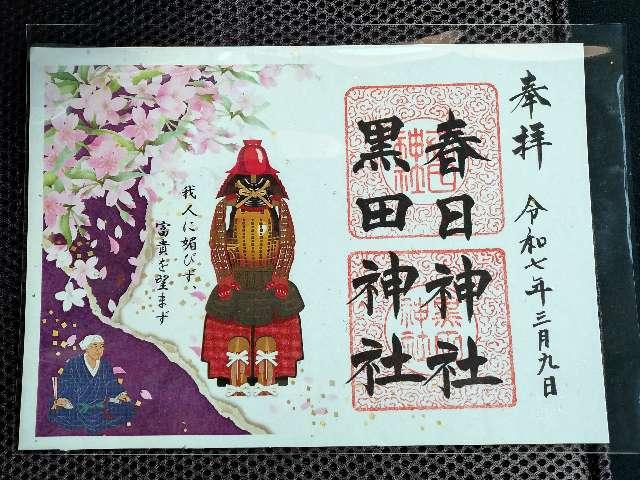 奉拝
令和七年三月九日
春日神社
黒田神社
我人に媚びず、
富貴を望まず